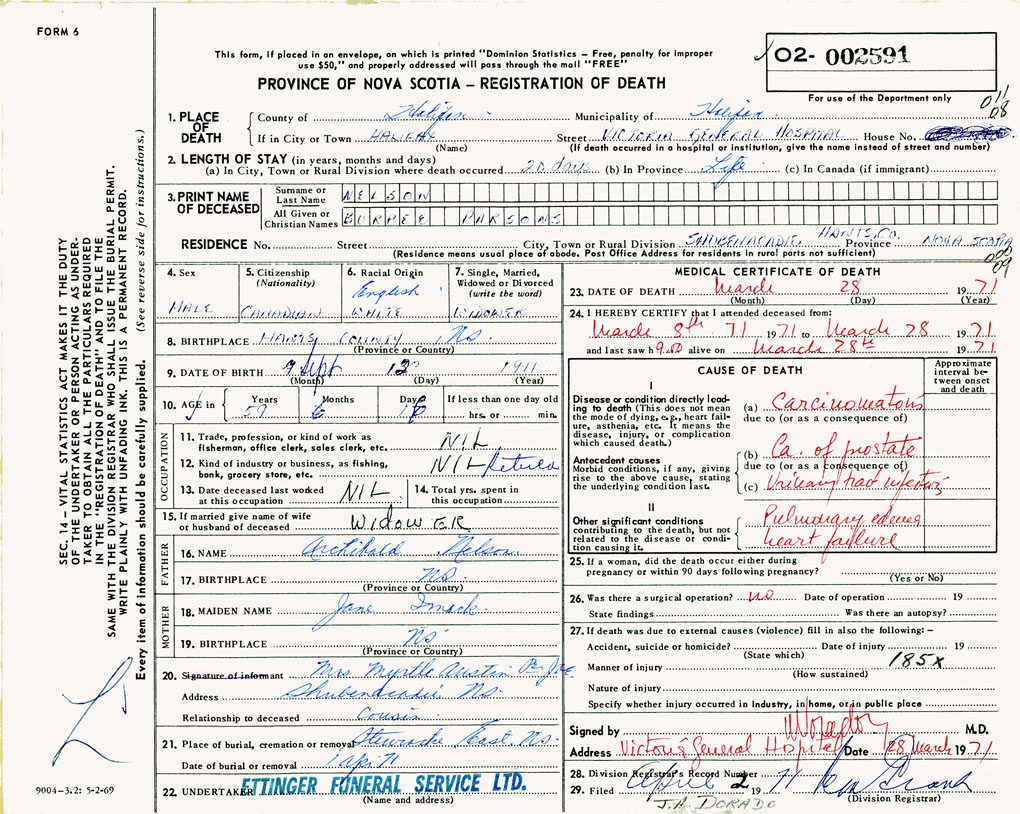 FORM 6
This form, if placed in an envelope, on which is printed "Dominion Statistics – Free, penalty for improper
use $50," and properly addressed will pass through the mail "FREE"
PROVINCE OF NOVA SCOTIA – REGISTRATION OF DEATH
O2- 002591
For use of the Department only
011
08
1. PLACE OF DEATH
County of Halifax Municipality of Halifax
If in City or Town HALIFAX Street VICTORIA GENERAL HOSPITAL House No.
(Name) (If death occurred in a hospital or institution, give the name instead of street and number)
2. LENGTH OF STAY (in years, months and days)
(a) In City, Town or Rural Division where death occurred 20 days (b) In Province Life (c) In Canada (if immigrant)
3. PRINT NAME OF DECEASED
Surname or Last Name NELSON
All Given or Christian Names BURPEE PARSONS
RESIDENCE No. Street City, Town or Rural Division SHUBENACADIE, HANTS CO. Province NOVA SCOTIA
(Residence means usual place of abode. Post Office Address for residents in rural parts not sufficient)
009
4. Sex
MALE
5. Citizenship
(Nationality)
CANADIAN
6. Racial Origin
English
WHITE
7. Single, Married,
Widowed or Divorced
(write the word)
WIDOWER
8. BIRTHPLACE HANTS COUNTY NS
(Province or County)
9. DATE OF BIRTH Sept 12 1911
(Month) (Day) (Year)
10. AGE in Years Months Days If less than one day old
59 6 16 hrs. or min.
OCCUPATION
11. Trade, profession, or kind of work as
fisherman, office clerk, sales clerk, etc. NIL
12. Kind of industry or business, as fishing,
bank, grocery store, etc. NIL Retired
13. Date deceased last worked
at this occupation NIL
14. Total yrs. spent in
this occupation
15. If married give name of wife
or husband of deceased WIDOWER
FATHER
16. NAME Archibald Nelson
17. BIRTHPLACE NS
(Province or County)
MOTHER
18. MAIDEN NAME Jane
19. BIRTHPLACE NS
(Province or County)
20. Signature of informant Mrs Myrtle Austin Per
Address Shubenacadie NS.
Relationship to deceased Cousin
21. Place of burial, cremation or removal East, NS.
Date of burial or removal 1 Apr 71
22. UNDERTAKER ETTINGER FUNERAL SERVICE LTD.
(Name and address)
MEDICAL CERTIFICATE OF DEATH
23. DATE OF DEATH March 28 1971
(Month) (Day) (Year)
24. I HEREBY CERTIFY that I attended deceased from:
March 8th 71 1971 to March 28 1971
and last saw h alive on March 28th 1971
CAUSE OF DEATH
Approximate
interval be-
tween onset
and death
I
Disease or condition directly lead-
ing to death (This does not mean
the mode of dying, e.g., heart fail-
ure, asthenia, etc. It means the
disease, injury, or complication
which caused death.)
(a) Carcinomatosis
due to (or as a consequence of)
Antecedent causes
Morbid conditions, if any, giving
rise to the above cause, stating
the underlying condition last.
(b) Ca. of prostate
due to (or as a consequence of)
(c) Urinary tract infection
II
Other significant conditions
contributing to the death, but not
related to the disease or condi-
tion causing it.
Pulmonary edema
heart failure
25. If a woman, did the death occur either during
pregnancy or within 90 days following pregnancy?
(Yes or No)
26. Was there a surgical operation? no Date of operation 19
State findings Was there an autopsy?
27. If death was due to external causes (violence) fill in also the following: –
Accident, suicide or homicide? Date of injury 19
(State which)
185X
Manner of injury
(How sustained)
Nature of injury
Specify whether injury occurred in Industry, in home, or in public place
Signed by M.D.
Address Victoria General Hospital Date 28 March 1971
28. Division Registrar's Record Number
29. Filed April 2 1971
(Division Registrar)
J.A. DORADO
SEC. 14 – VITAL STATISTICS ACT MAKES IT THE DUTY
OF THE UNDERTAKER OR PERSON ACTING AS UNDER-
TAKER TO OBTAIN ALL THE PARTICULARS REQUIRED
IN THE "REGISTRATION OF DEATH" AND TO FILE THE
SAME WITH THE DIVISION REGISTRAR WHO SHALL ISSUE THE BURIAL PERMIT.
WRITE PLAINLY WITH UNFADING INK. THIS IS A PERMANENT RECORD.
Every item of information should be carefully supplied. (See reverse side for instructions.)
9004–3.2: 5-2-69